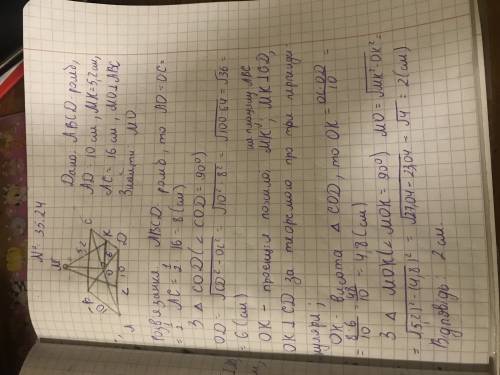 № 35.24
M
5,2
B
C
K
O
D
10
A
Дано: ABCD - ромб,
AD = 10 см, MK = 5,2 см,
AC = 16 см, MO ⊥ ABC
Знайти: MO
Розв'язання ABCD ромб, то AO = OC =
= 1/2 AC = 1/2 16 = 8 (см)
З △ COD (∠ COD = 90°)
OD = √CD² - OC² = √10² - 8² = √100-64 = √36 =
= 6 (см)
OK - проекція похило. MK; MK ⊥ CD,
на площину ABC
OK ⊥ CD за теоремою про три перпенди
куляри;
OK - висота △ COD, то OK = OC·OD/10 =
= 8·6/10 = 48/10 = 4,8 (см)
З △ MOK (∠ MOK = 90°) MO = √MK² - OK² =
= √5,2² - (4,8)² = √27,04 - 23,04 = √4 = 2 (см)
Відповідь: 2 см.